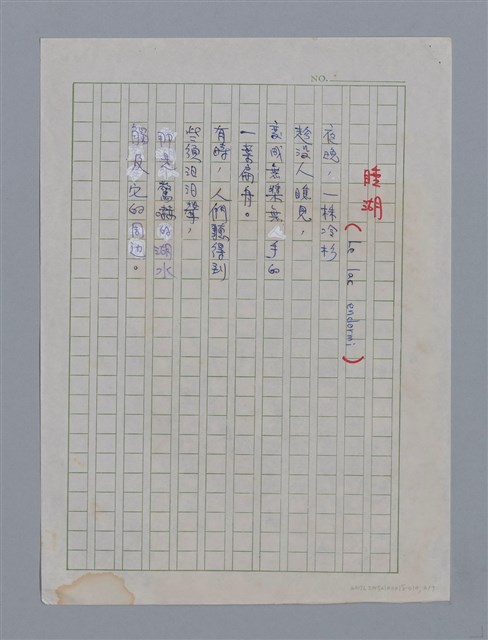 NO.
睡湖
(le lac endormi)
夜晚，一株冷杉
趁沒人瞧見，
變成無槳無 手的
一葉扁舟。
有時，人們聽得到
些須汩汩聲，
驚嚇的湖水
觸及它的周边。